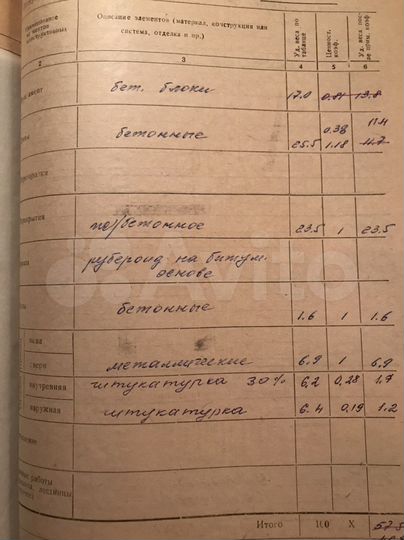 Наименование
Описание элементов (материал, конструкция или
система, отделка и пр.)
Уд. веса по
таблице
Ценност.
коэф.
Уд. веса пос-
ле прим. коэф
2 3 4 5 6
бет. блоки 17.0 0.81 13.8
бетонные 25.5 0.38 1.18 11.4
перегородки
ж/бетонное 23.5 1 23.5
рубероид на битум.
основе
бетонные 1.6 1 1.6
окна
двери металлические 6.9 1 6.9
внутренняя штукатурка 30% 6,2 0,28 1.7
наружная штукатурка 6.4 0,19 1.2
работы
Итого 100 X 57.8
Avito